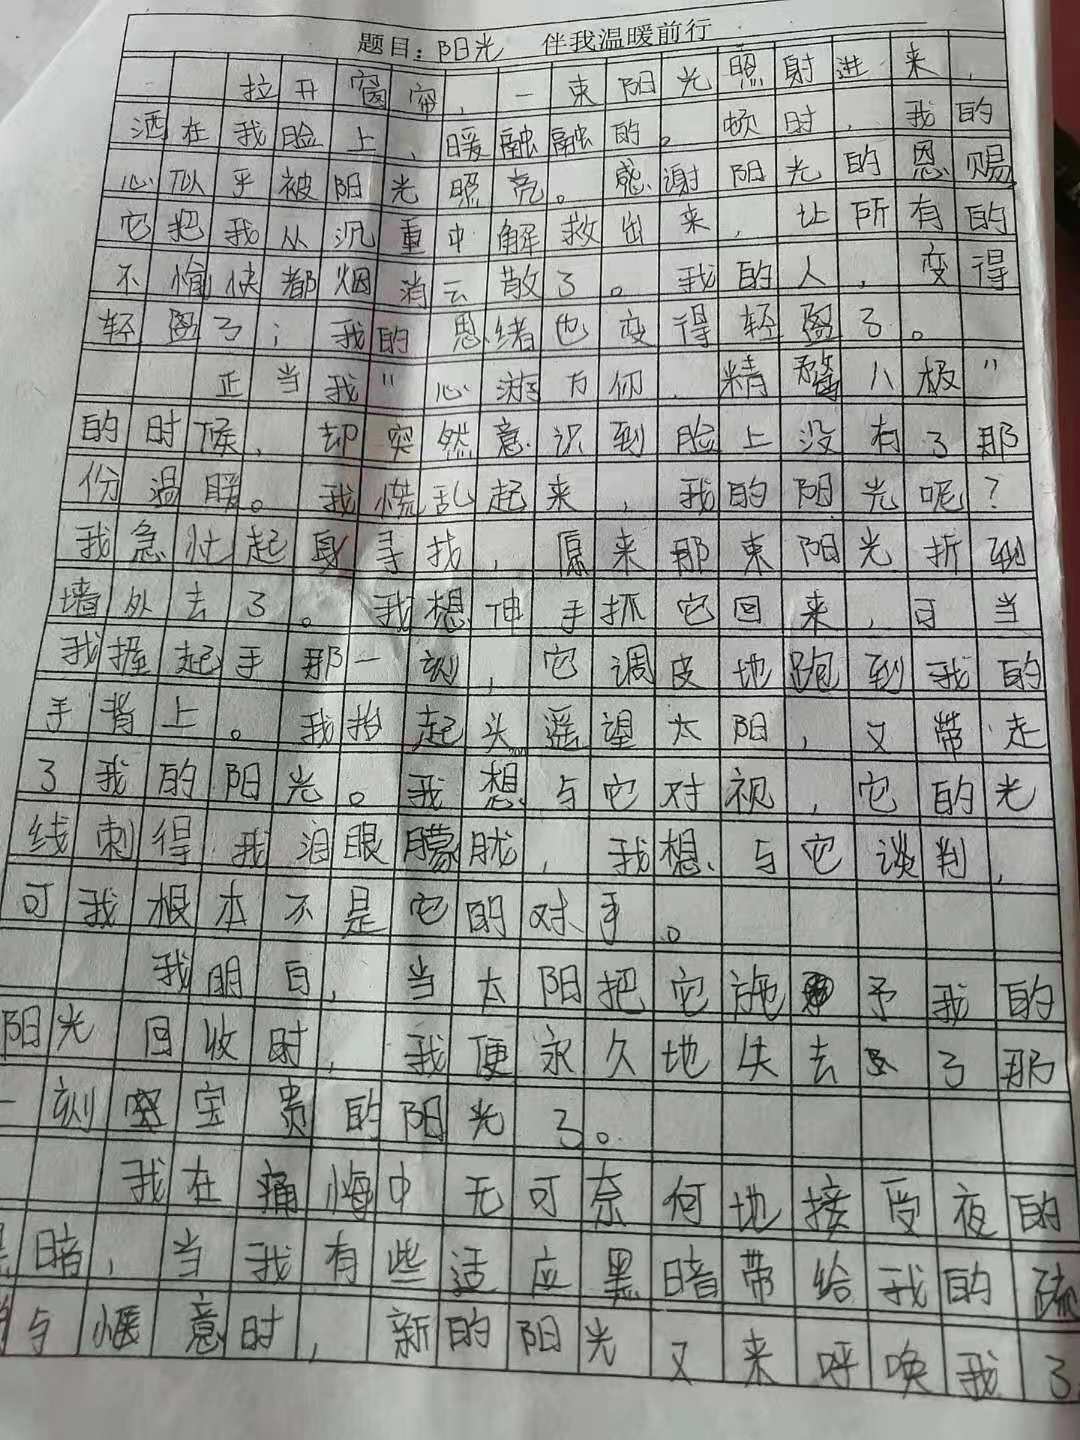 题目：阳光 伴我温暖前行
拉开窗帘，一束阳光照射进来，
洒在我脸上，暖融融的。顿时，我的
心似乎被阳光照亮。感谢阳光的恩赐
它把我从沉重中解救出来，让所有的
不愉快都烟消云散了。我的人，变得
轻盈了；我的思绪也变得轻盈了。
正当我"心游万仞，精骛八极"
的时候，却突然意识到脸上没有了那
份温暖。我慌乱起来，我的阳光呢？
我急忙起身寻找，原来那束阳光折到
墙外去了。我想伸手抓它回来，可当
我握起手那一刻，它调皮地跑到我的
手背上。我抬起头遥望太阳，又带走
了我的阳光。我想与它对视，它的光
线刺得我泪眼朦胧，我想与它谈判，
可我根本不是它的对手。
我明白，当太阳把它施予我的
阳光回收时，我便永久地失去了那
一刻宝贵的阳光了。
我在痛悔中无可奈何地接受夜的
暗，当我有些适应黑暗带给我的
与惬意时，新的阳光又来呼唤我了